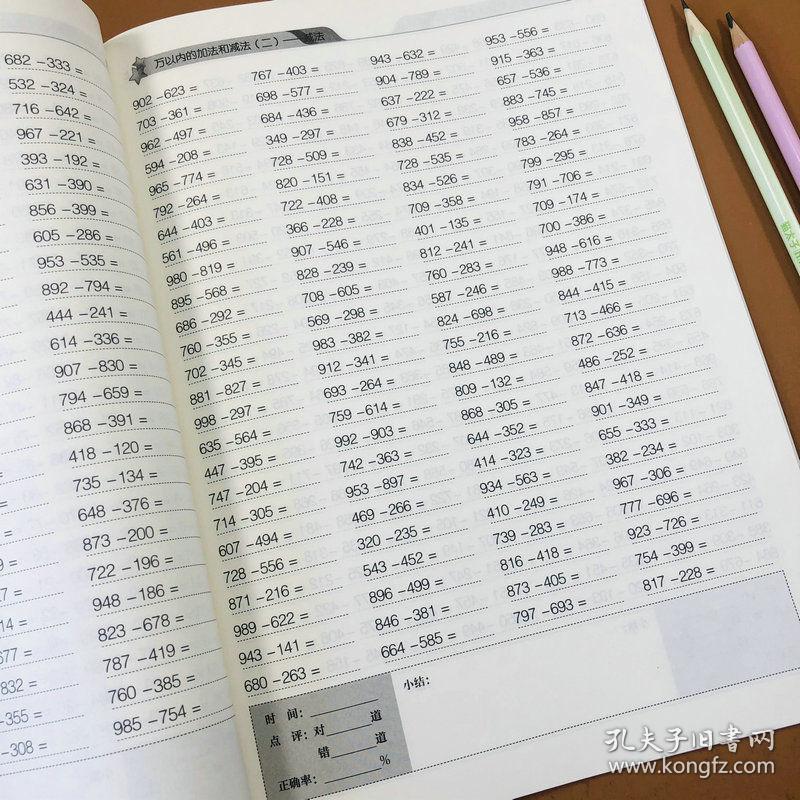 682 −333 =
532 −324 =
716 −642 =
967 −221 =
393 −192 =
631 −390 =
856 −399 =
605 −286 =
953 −535 =
892 −794 =
444 −241 =
614 −336 =
907 −830 =
794 −659 =
868 −391 =
418 −120 =
735 −134 =
648 −376 =
873 −200 =
722 −196 =
948 −186 =
823 −678 =
787 −419 =
760 −385 =
985 −754 =
−355 =
−308 =
万以内的加法和减法（二）——减法
902 −623 =
703 −361 =
962 −497 =
594 −208 =
965 −774 =
792 −264 =
644 −403 =
561 −496 =
980 −819 =
895 −568 =
686 −292 =
760 −355 =
702 −345 =
881 −827 =
998 −297 =
635 −564 =
447 −395 =
747 −204 =
714 −305 =
607 −494 =
728 −556 =
871 −216 =
989 −622 =
943 −141 =
680 −263 =
767 −403 =
698 −577 =
684 −436 =
349 −297 =
728 −509 =
820 −151 =
722 −408 =
366 −228 =
907 −546 =
828 −239 =
708 −605 =
569 −298 =
983 −382 =
912 −341 =
693 −264 =
759 −614 =
992 −903 =
742 −363 =
953 −897 =
469 −266 =
320 −235 =
543 −452 =
896 −499 =
846 −381 =
664 −585 =
943 −632 =
904 −789 =
637 −222 =
679 −312 =
838 −452 =
728 −535 =
834 −526 =
709 −358 =
401 −135 =
812 −241 =
760 −283 =
587 −246 =
824 −698 =
755 −216 =
848 −489 =
809 −132 =
868 −305 =
644 −352 =
414 −323 =
934 −563 =
410 −249 =
739 −283 =
816 −418 =
873 −405 =
797 −693 =
953 −556 =
915 −363 =
657 −536 =
883 −745 =
958 −857 =
783 −264 =
799 −295 =
791 −706 =
709 −174 =
700 −386 =
948 −616 =
988 −773 =
844 −415 =
713 −466 =
872 −636 =
486 −252 =
847 −418 =
901 −349 =
655 −333 =
382 −234 =
967 −306 =
777 −696 =
923 −726 =
754 −399 =
817 −228 =
时 间：
点 评：对 道
错 道
正确率： %
小结：
孔夫子旧书网
www.kongfz.com